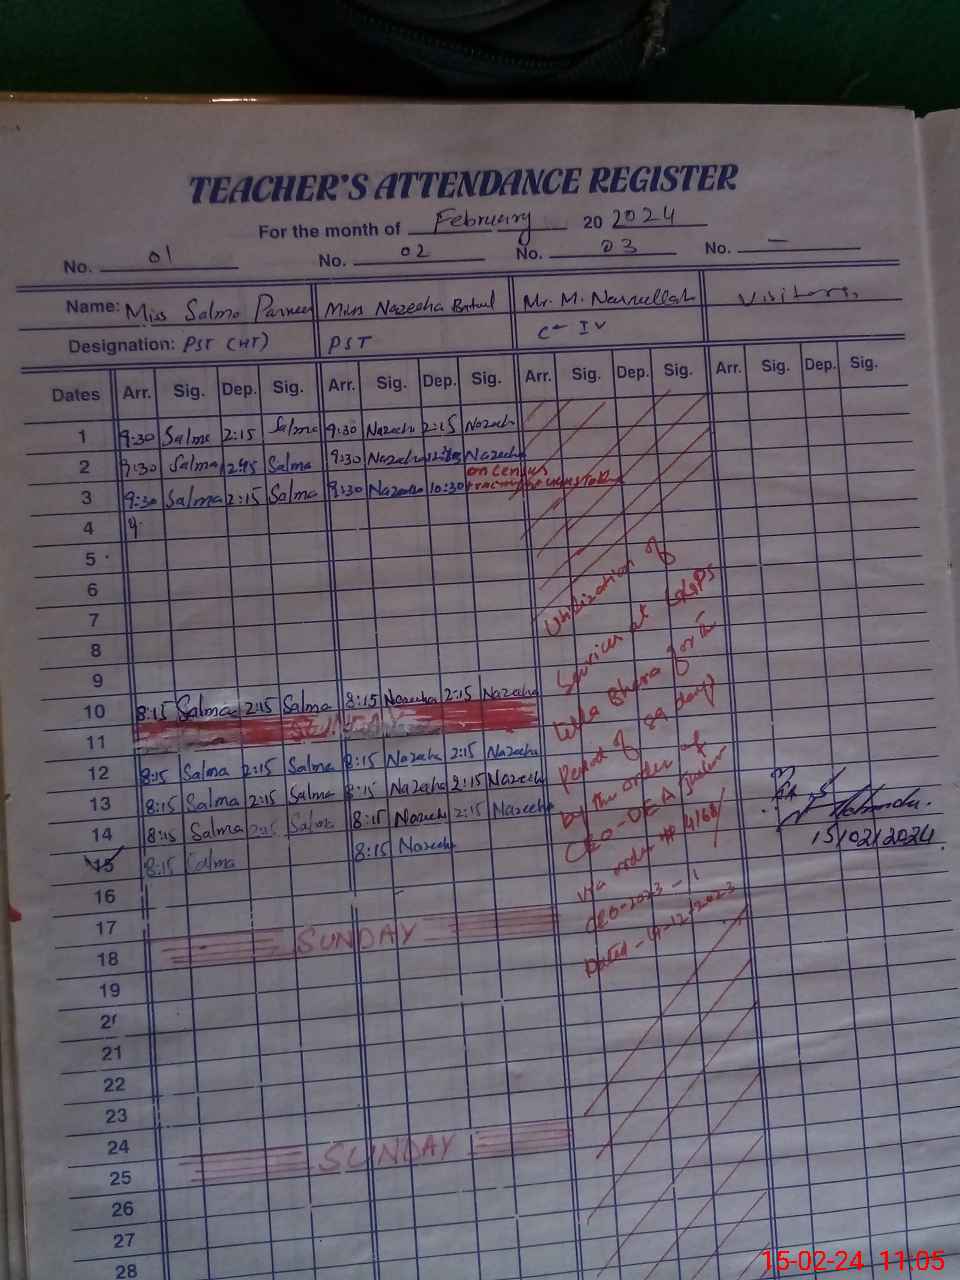 TEACHER'S ATTENDANCE REGISTER
For the month of February 20 2024
No. 01 No. 02 No. 03 No. —
Name: Miss Salma Parveen Miss Nazeeha Batul Mr. M. Visitors,
Designation: PST (HT) PST C- IV
Dates Arr. Sig. Dep. Sig. Arr. Sig. Dep. Sig. Arr. Sig. Dep. Sig. Arr. Sig. Dep. Sig.
1 9:30 Salma 2:15 Salma 9:30 Nazeeha 2:15 Nazeeha
2 9:30 Salma Salma 9:30 Nazeeha Nazeeha
on census
3 9:30 Salma 2:15 Salma 9:30 Nazeeha 10:30
4 9:
5
6
7
8
9
10 8:15 Salma 2:15 Salma 8:15 Nazeeha 2:15 Nazeeha
11 SUNDAY
12 8:15 Salma 2:15 Salma 8:15 Nazeeha 2:15 Nazeeha
13 8:15 Salma 2:15 Salma 8:15 Nazeeha 2:15 Nazeeha
14 8:15 Salma 2:15 Salma 8:15 Nazeeha 2:15 Nazeeha
15 8:15 Salma 8:15 Nazeeha
16
17
18 SUNDAY
19
21
22
23
24
25 SUNDAY
26
27
28
Utilization of
Services at GGPS
for the
Period of 89 days
by the order of
CEO-DEA
via order # 4168/
CEO-2023-1
Dated-
15/02/2024
15-02-24 11:05